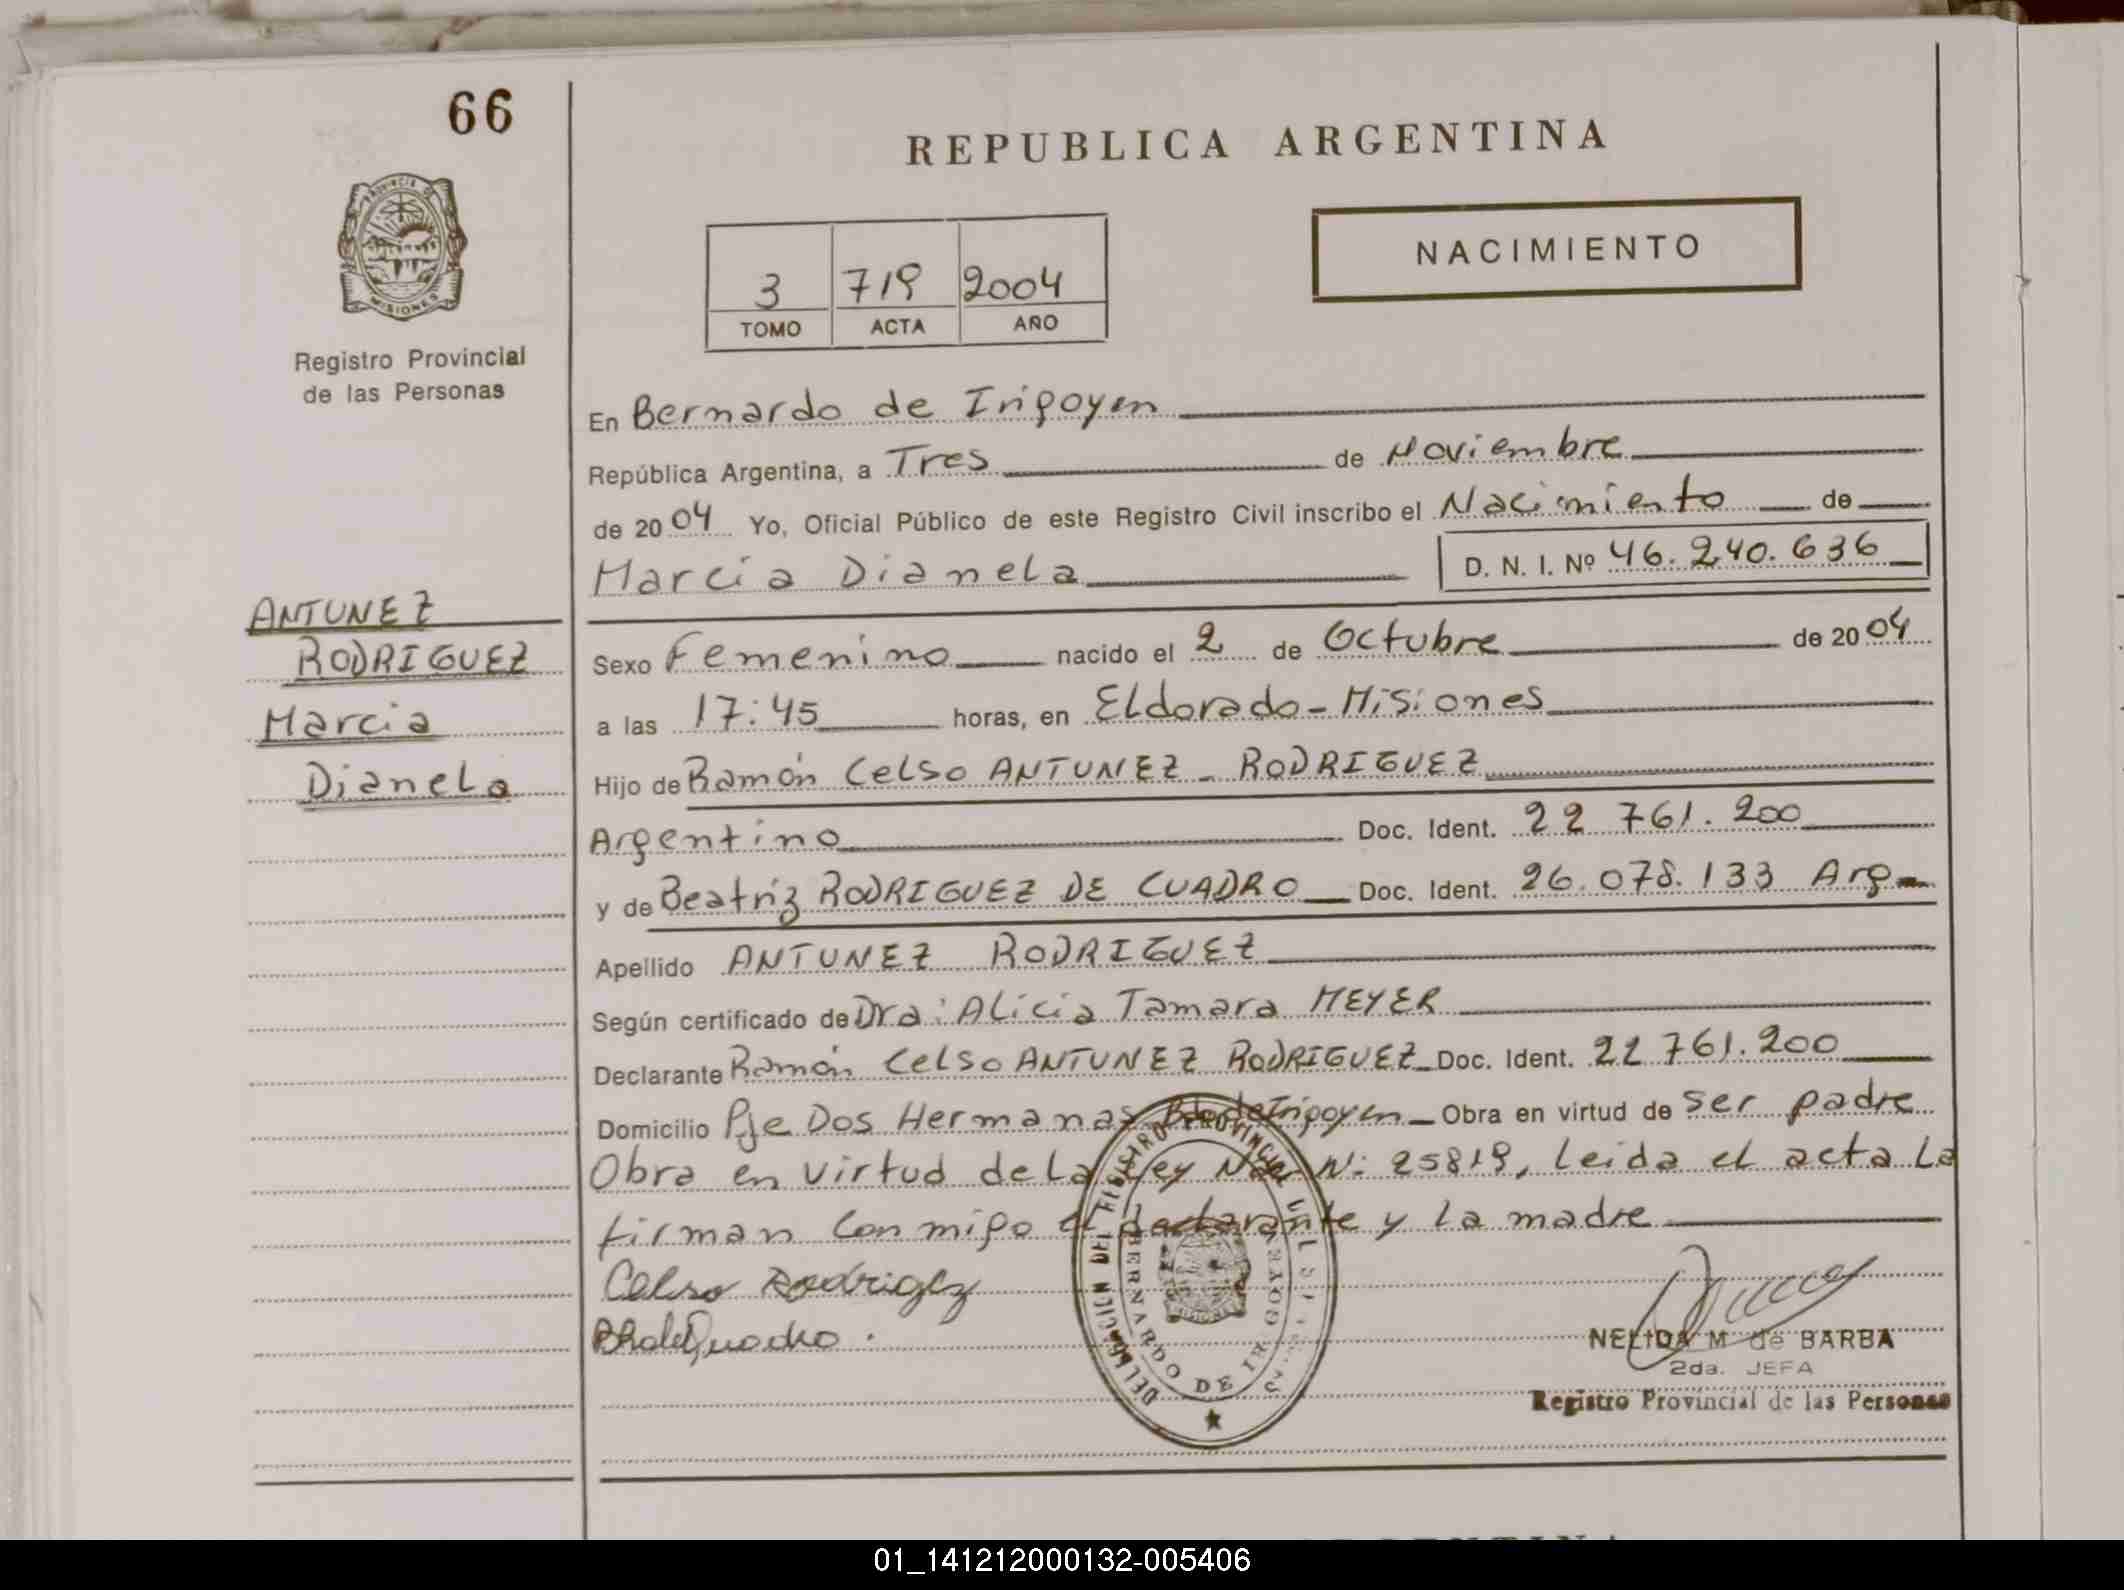 66
REPUBLICA ARGENTINA
PROVINCIA DE
MISIONES
Registro Provincial
de las Personas
3 719 2004
TOMO ACTA AÑO
NACIMIENTO
En Bernardo de Irigoyen
República Argentina, a Tres de Noviembre
de 2004 Yo, Oficial Público de este Registro Civil inscribo el Nacimiento de
Marcia Dianela D. N. I. Nº 46.240.636
ANTUNEZ
RODRIGUEZ
Marcia
Dianela
Sexo Femenino nacido el 2 de Octubre de 2004
a las 17:45 horas, en Eldorado - Misiones
Hijo de Ramón Celso ANTUNEZ - RODRIGUEZ
Argentino Doc. Ident. 22 761.200
y de Beatriz RODRIGUEZ DE CUADRO Doc. Ident. 26.078.133 Arg
Apellido ANTUNEZ RODRIGUEZ
Según certificado de Dra: Alicia Tamara MEYER
Declarante Ramón Celso ANTUNEZ RODRIGUEZ Doc. Ident. 22 761.200
Domicilio Pje Dos Hermanas Bdo de Irigoyen Obra en virtud de ser padre
Obra en virtud de La Ley Nac N: 25819, Leida el acta La
firman Conmigo el declarante y La madre
Celso Rodrigez
DELEGACION DEL REGISTRO PROVINCIAL
BERNARDO DE IRIGOYEN
NELIDA M de BARBA
2da. JEFA
Registro Provincial de las Personas
01_141212000132-005406